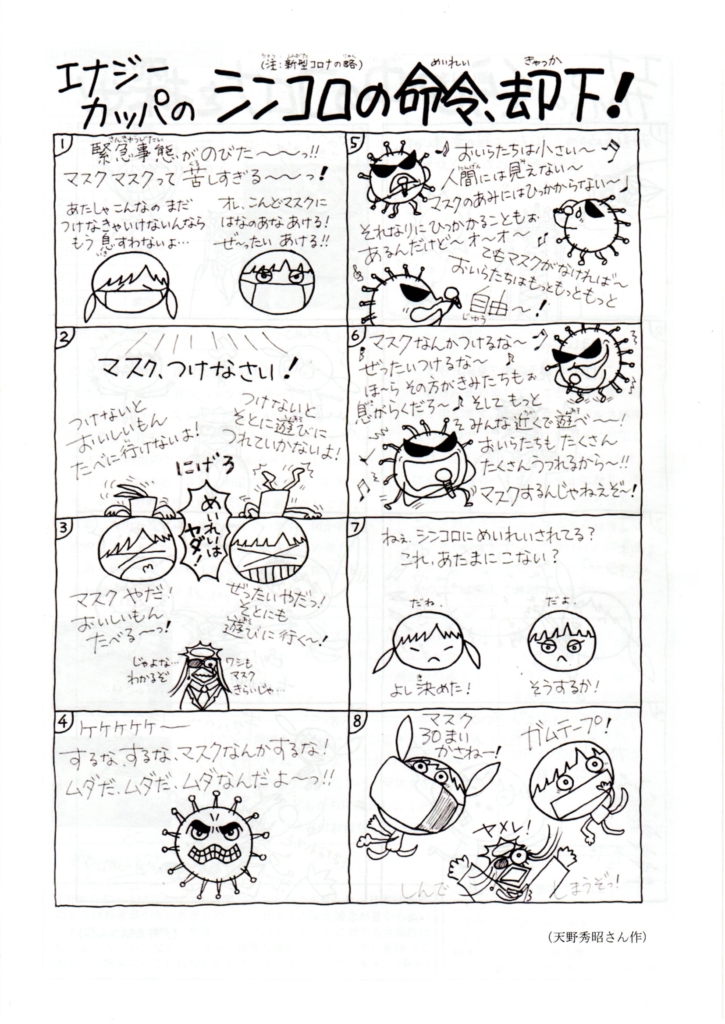 エナジー
カッパの
(注:新型コロナの略)
ちゅう しんがた りゃく
めいれい きゃっか
シンコロの命令、却下!
1
きんきゅうじたい
緊急事態がのびた〜〜っ!!
マスクマスクって苦しすぎる〜〜っ!
あたしゃこんなの まだ
つけなきゃいけないんなら
もう息すわないよ…
いき
オレ、こんどマスクに
はなのあな あける!
ぜ〜ったい あける!!
2
マスク、つけなさい!
つけないと
おいしいもん
たべに行けないよ!
つけないと
そとに遊びに
つれていかないよ!
にげろ
めいれいは
ヤダ!
3
マスク やだ!
おいしいもん
たべる〜っ!
ぜったいやだっ!
そとにも
遊びに行く〜!
じゃよな…
わかるぞ
ワシも
マスク
きらいじゃ…
4
ケケケケケ〜
するな、するな、マスクなんかするな!
ムダだ、ムダだ、ムダなんだよ〜っ!!
5
おいらたちは小さい〜
にんげん
人間には見えない〜
マスクのあみにはひっかからない〜
それなりにひっかかることもぉ
あるんだけど〜 オ〜オ〜
でもマスクがなければ〜
おいらたちはもっともっともっと
自由〜!
じゆう
6
マスクなんかつけるな〜
ぜったいつけるな〜
ほ〜ら その方がきみたちもぉ
息がらくだろ〜 そして もっと
みんな近くで遊べ〜〜!
おいらたちも たくさん
たくさんうつれるから〜!!
マスクするんじゃねえぞ〜!
7
ねぇ、シンコロにめいれいされてる?
これ、あたまにこない?
だね。
だよ。
よし決めた!
き
そうするか!
8
マスク
30まい
がさねー!
ガムテープ!
ヤメレ!
しんで
しまうぞっ!
(天野秀昭さん作)